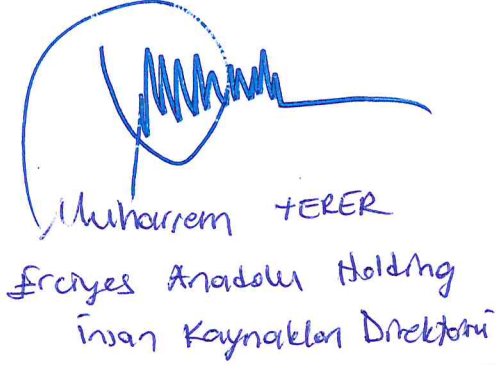 Muharrem TERER
Erciyes Anadolu Holding
İnsan Kaynakları Direktörü